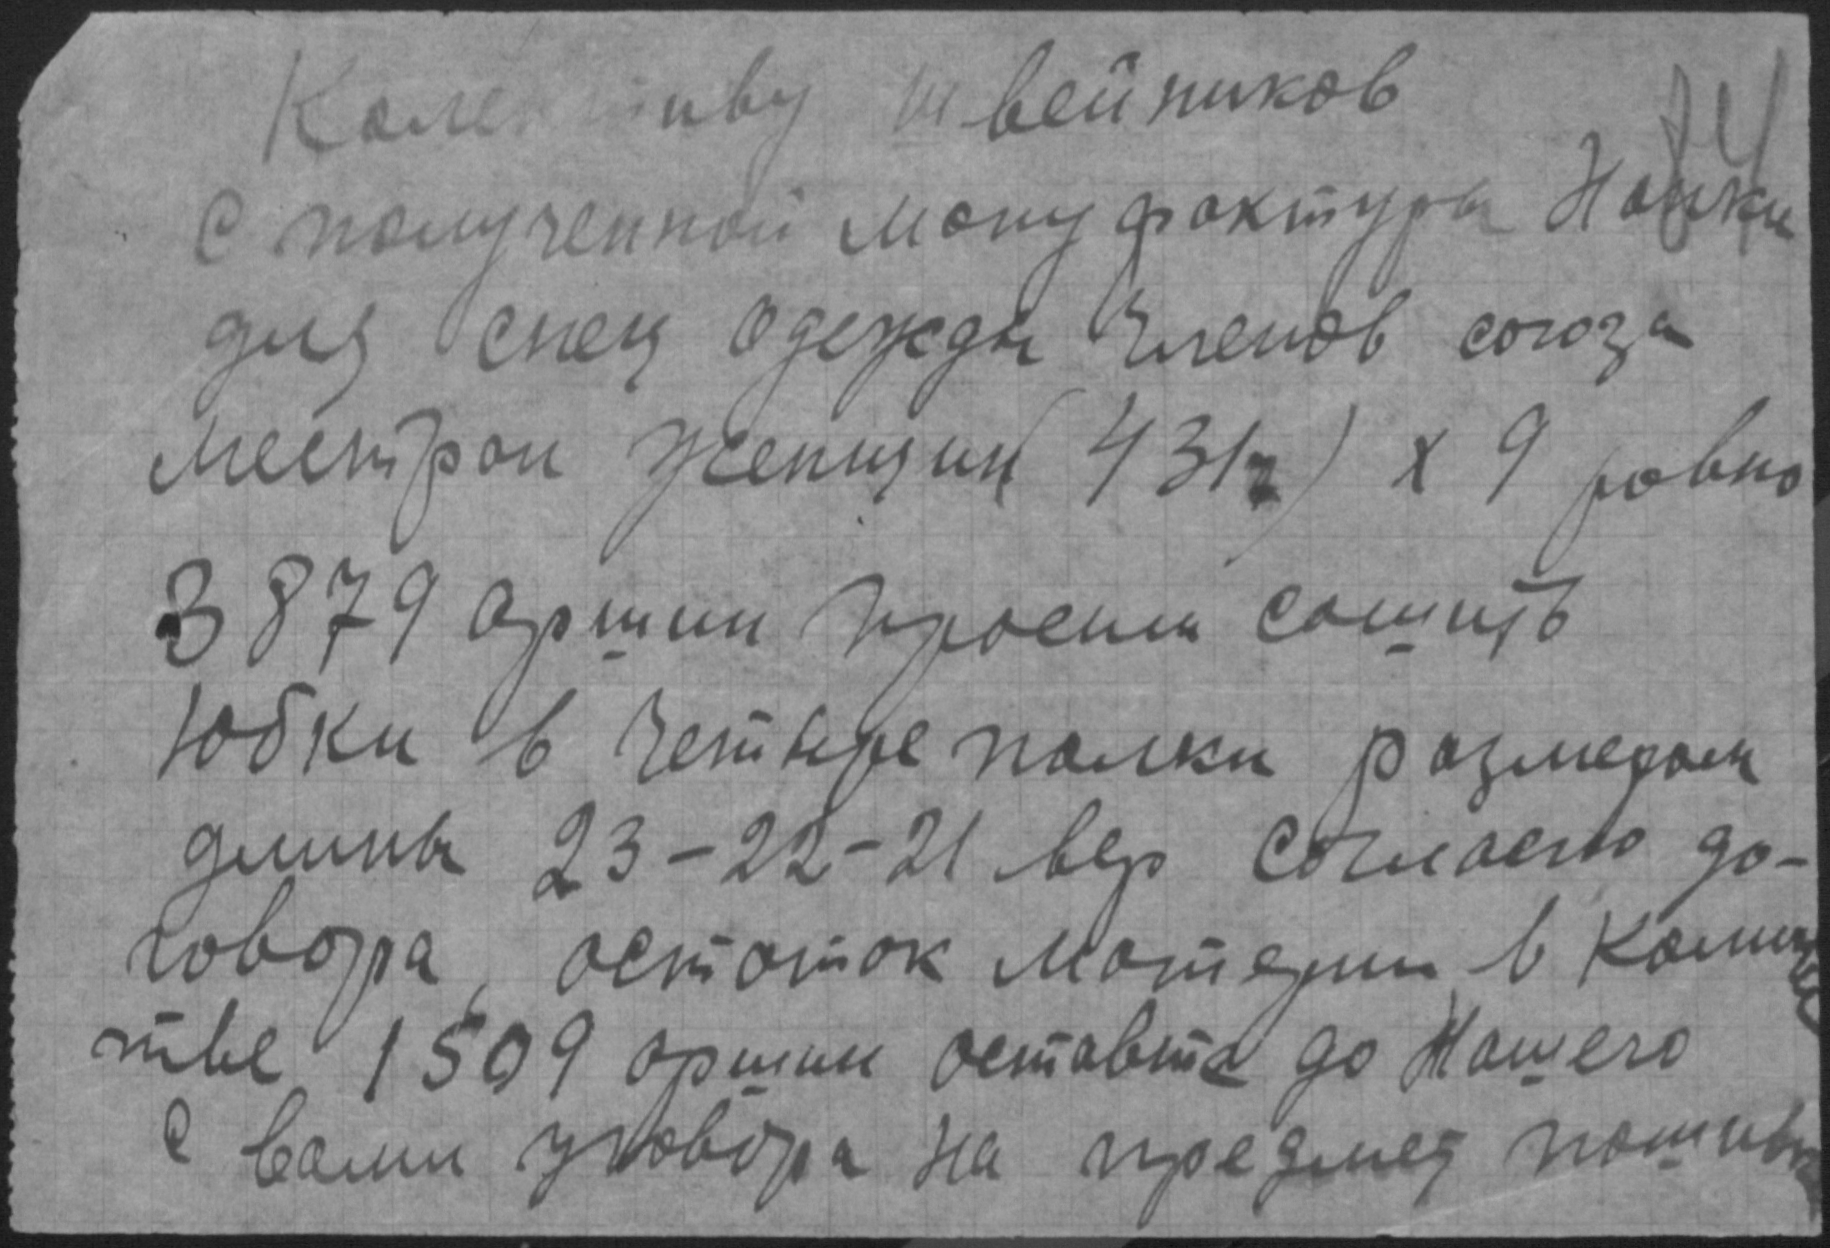 Колективу швейников
74
с полученной мануфактуры Нанки
для спец одежды членов союза
Местран женщин (431) х 9 ровно
3879 аршин просим сошить
Юбки в четыре полки размером
длины 23-22-21 вер согласно до-
говора, остаток материи в Коли
тве 1509 аршин оставте до Нашего
с вами уговора на предмет пошивки